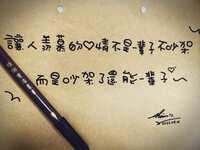 讓人羨慕的♡情不是一輩子不吵架
而是吵架了還能一輩子